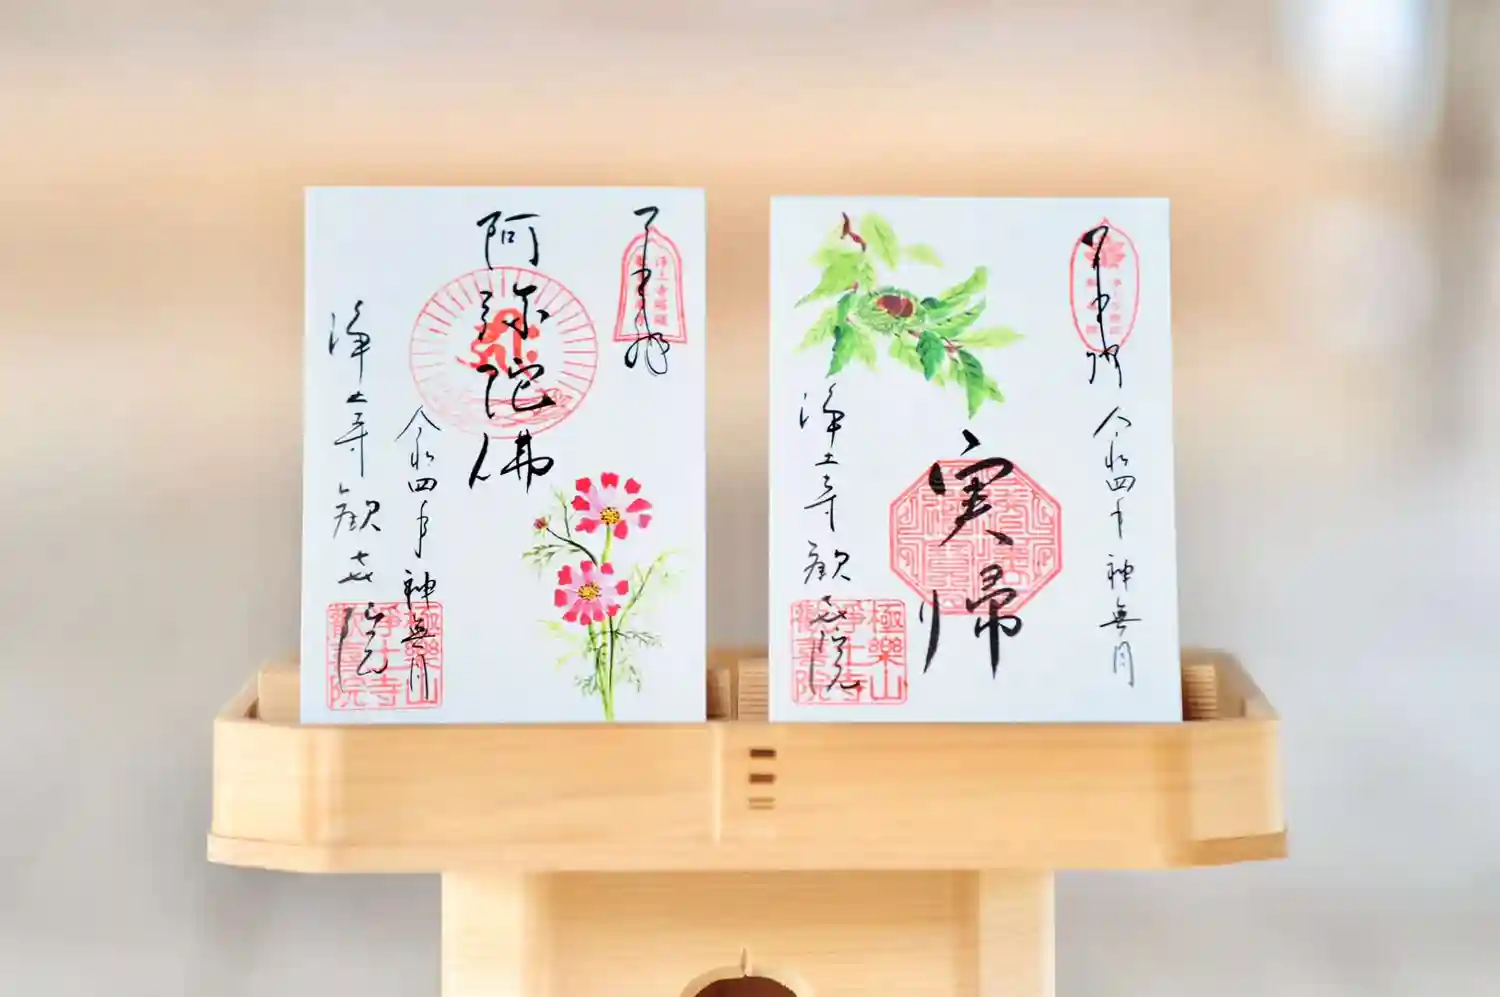 奉拝
阿弥陀佛
令和四年神無月
浄土寺歓喜院
極樂山
浄土寺
歓喜院
奉拝
令和四年神無月
実帰
浄土寺歓喜院
極樂山
浄土寺
歓喜院